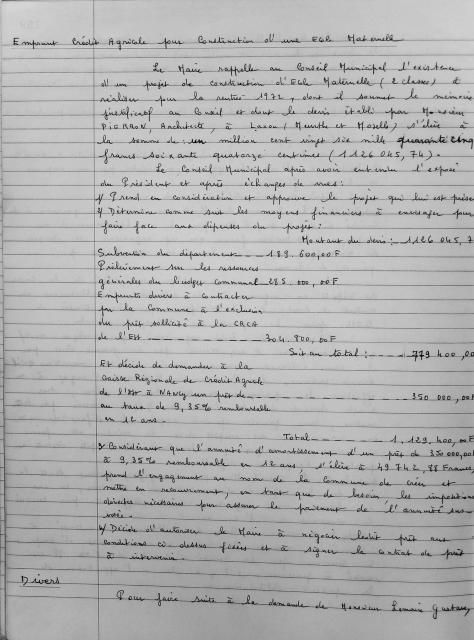 Emprunt Crédit Agricole pour Construction d'une Ecole Maternelle
Le Maire rappelle au Conseil Municipal l'existence
d'un projet de construction d'Ecole Maternelle (2 classes) à
réaliser pour la rentrée 1972, dont il soumet le mémoire
justificatif au Conseil et dont le devis établi par Monsieur
PIERRON, Architecte, à Laxou (Meurthe et Moselle) s'élève à
la somme de: un million cent vingt six mille quarante cinq
francs soixante quatorze centimes (1 126 045,74).
Le Conseil Municipal après avoir entendu l'exposé
du Président et après échanges de vues:
1/ Prend en considération et approuve le projet qui lui est présen
2/ Détermine comme suit les moyens financiers à envisager pour
faire face aux dépenses du projet:
Montant du devis: 1 126 045,7
Subvention du département 189.600,00F
Prélèvement sur les ressources
générales du budget communal 285.000,00F
Emprunts divers à contracter
par la Commune à l'exclusion
du prêt sollicité à la CRCA
de l'Est 304.800,00F
Soit au total: 779 400,00
Et décide de demander à la
Caisse Régionale de Crédit Agricole
de l'Est à NANCY un prêt de 350 000,00F
au taux de 9,35% remboursable
en 12 ans.
Total 1.129.400,00F
3/ Considérant que l'annuité d'amortissement d'un prêt de 350000,00
à 9,35% remboursable en 12 ans, s'élève à 49.742,88 Francs,
prend l'engagement au nom de la Commune de créer et
mettre en recouvrement, en tant que de besoin, les impositions
directes nécessaires pour assurer le paiement de l'annuité sus-
visée.
4/ Décide d'autoriser le Maire à négocier ledit prêt aux
conditions ci-dessus fixées et à signer le contrat de prêt
à intervenir.
Divers
Pour faire suite à la demande de Monsieur Lemoine Gustave,